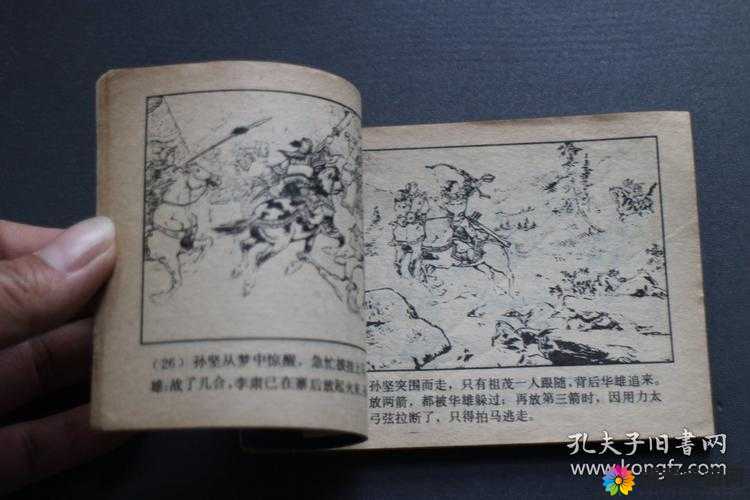 (26) 孙坚从梦中惊醒，急忙披挂上
雄；战了几合，李肃已在寨后放起火来
孙坚突围而走，只有祖茂一人跟随，背后华雄追来。
放两箭，都被华雄躲过；再放第三箭时，因用力太
弓弦拉断了，只得拍马逃走。
孔夫子旧書网
www.kongfz.com